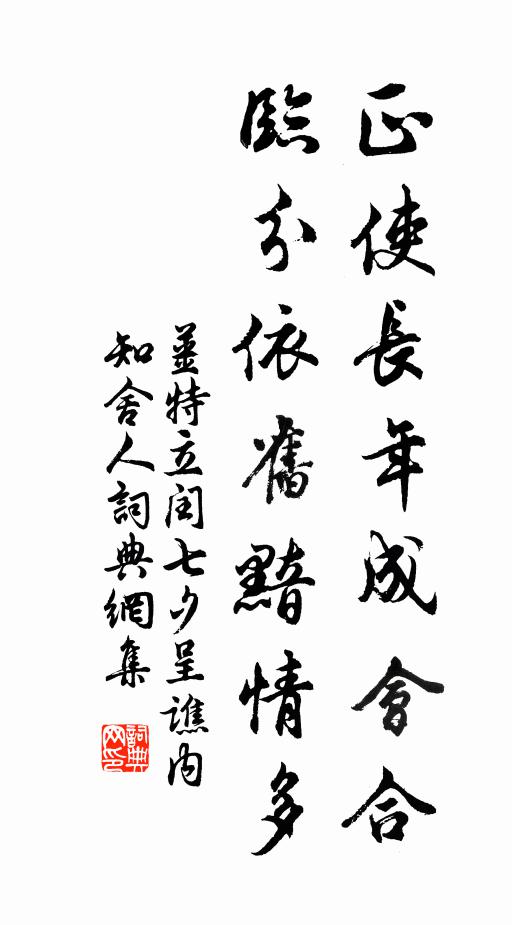 正使長年成會合
臨分依舊黯情多
薑特立閏七夕呈譙內
知舍人詞典網集
詞典网印